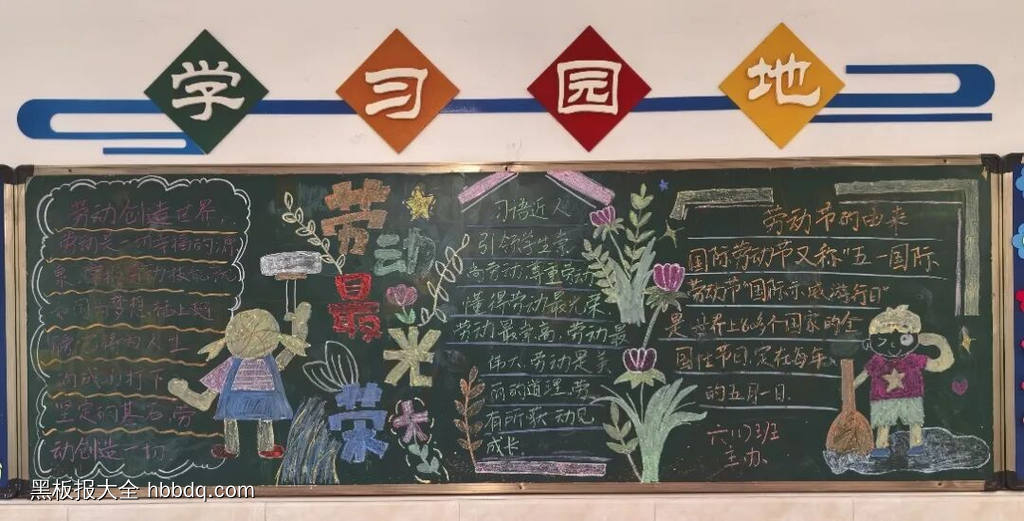 学习园地
劳动创造世界
劳动是一切幸福的源
泉
内人生
打下
坚定的基石,劳
动创造一切.
劳动
最
光
荣
习语近人
引领学生崇
尚劳动,尊重劳动
懂得劳动最光荣,
劳动最崇高,劳动最
伟大,劳动是美
丽的道理,劳
有所获,动见
成长.
劳动节的由来
国际劳动节又称“五一国际
劳动节”“国际示威游行日”
是世界上80多个国家的全
国性节日.定在每年
的五月一日.
六(1)班
主办.
黑板报大全 hbbdq.com